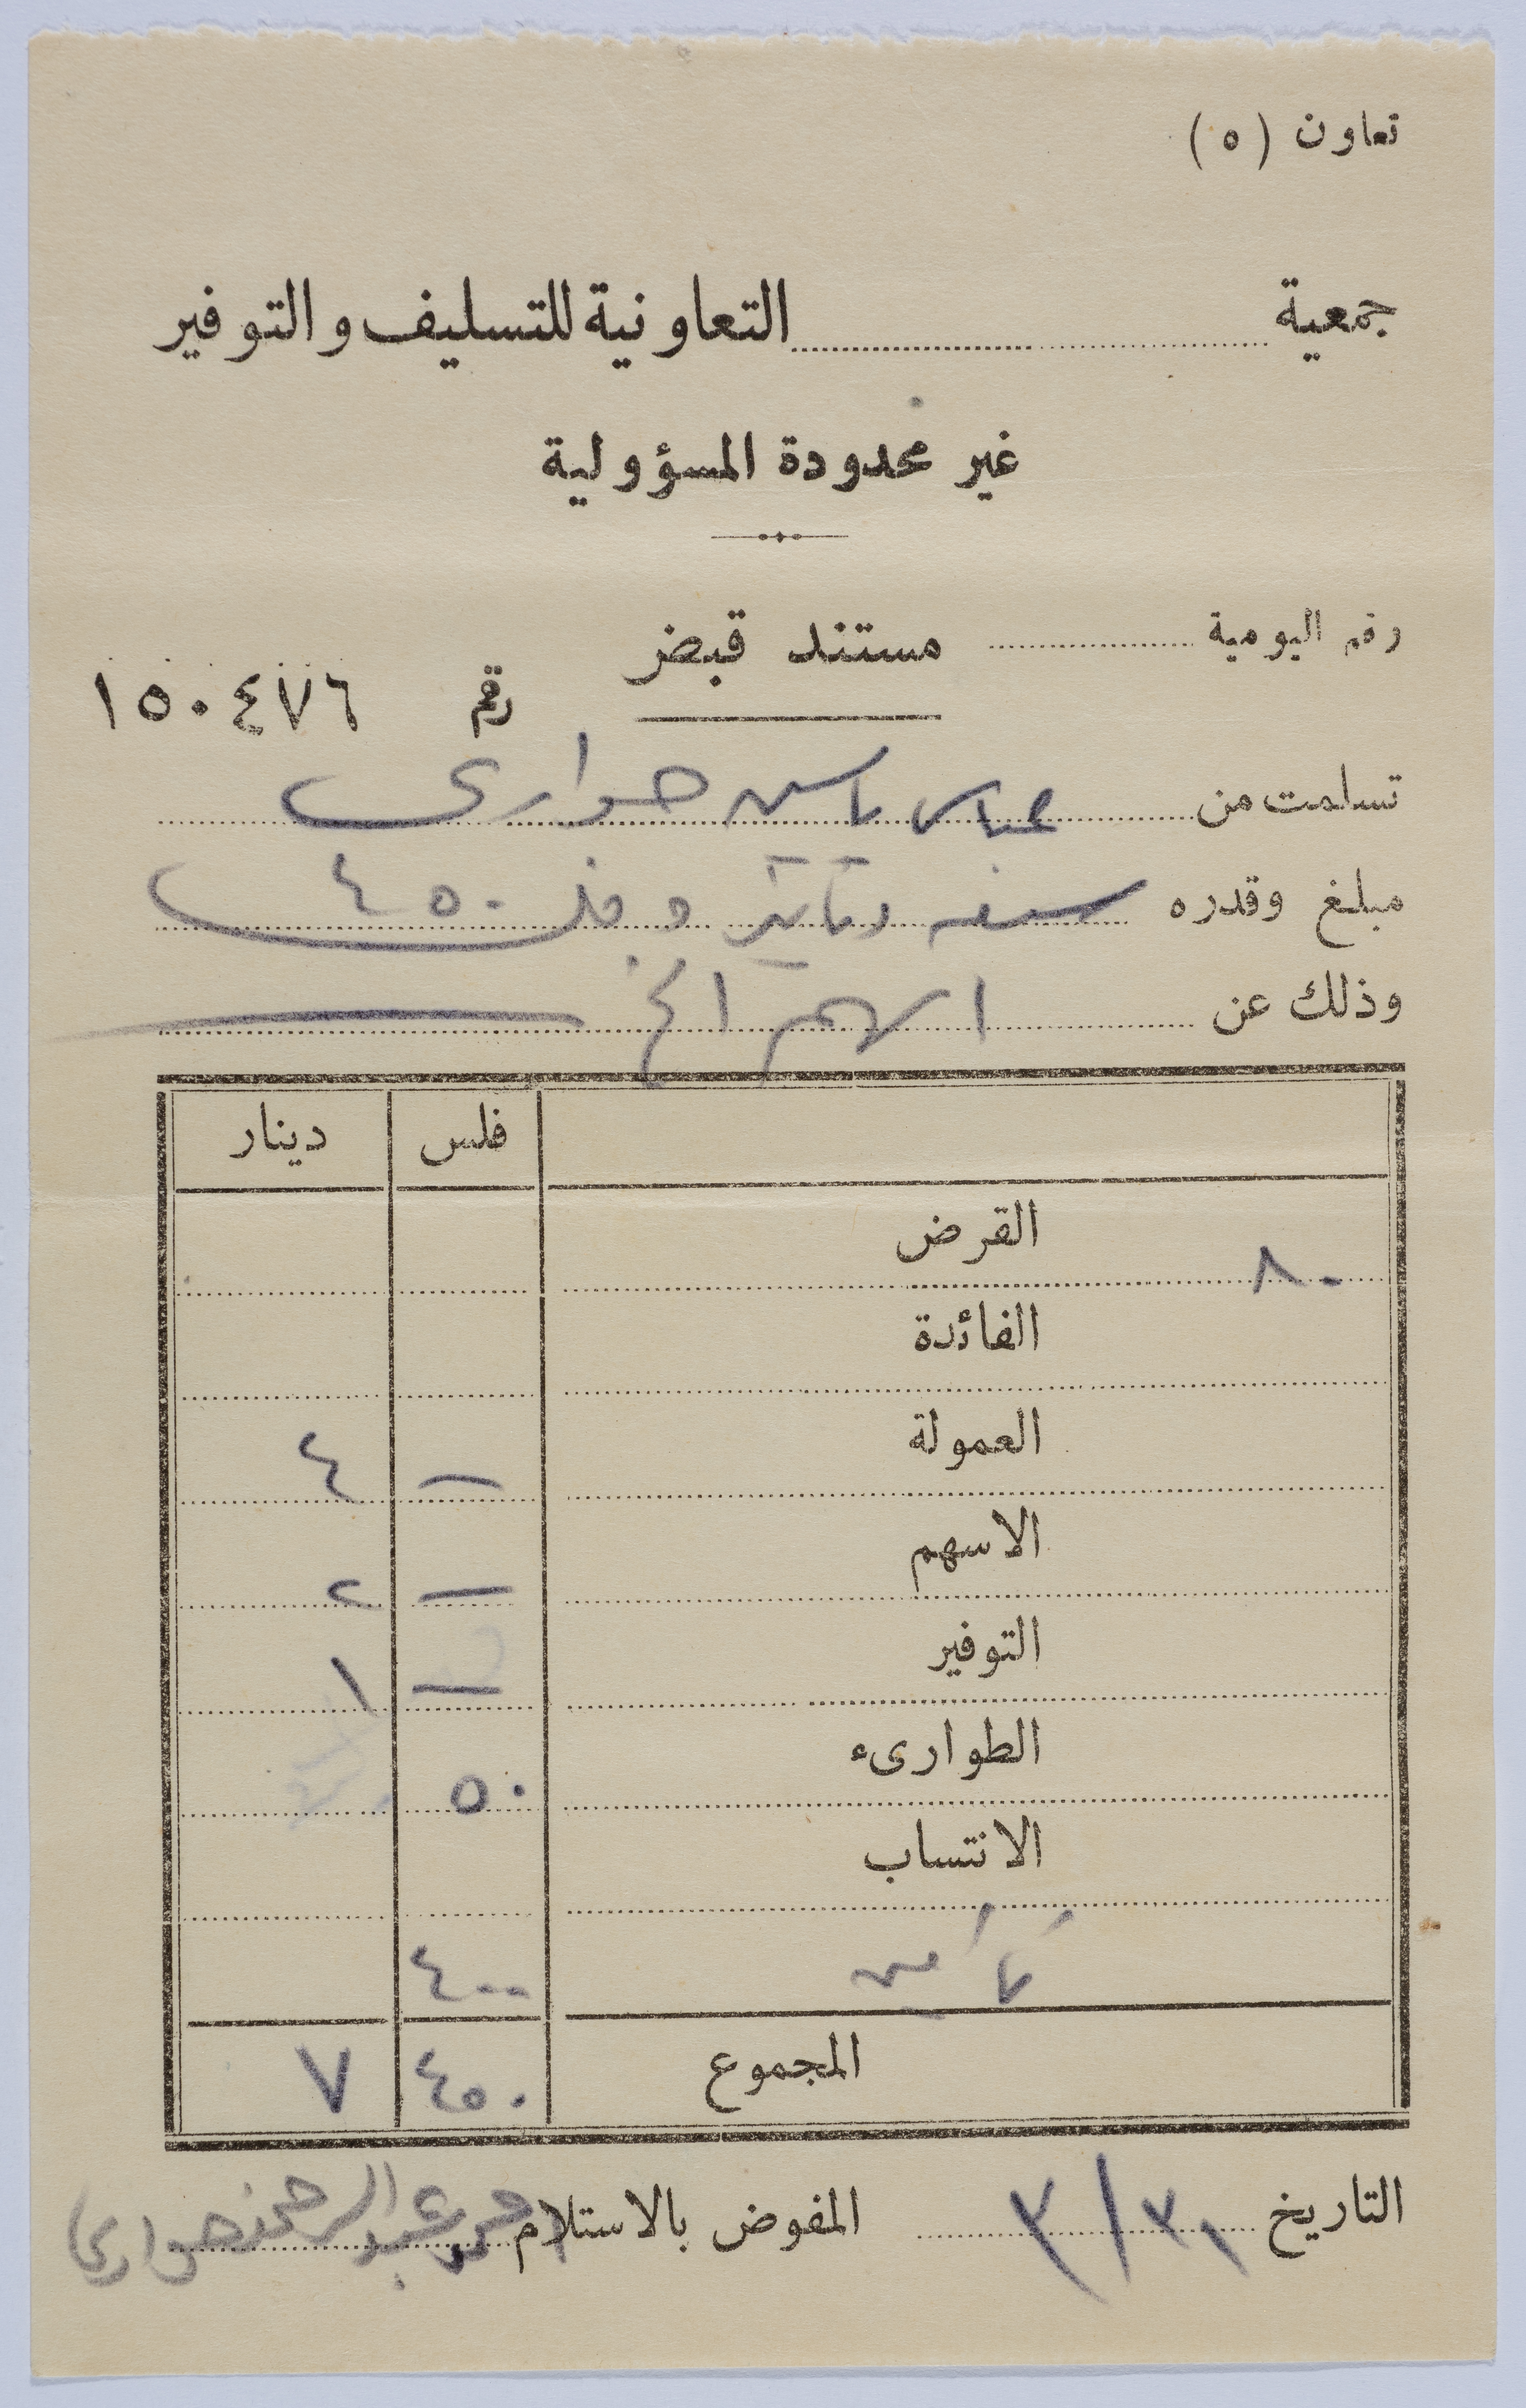 تعاون (٥)
جمعية التعاونية للتسليف والتوفير
غير محدودة المسؤولية
رقم اليومية
مستند قبض
رقم ١٥٠٤٧٦
تسلمت من عباس ياسين حواري
مبلغ وقدره سبعه دنانير و فلس ٤٥٠
وذلك عن اسهم الخ
فلس دينار
القرض ٨٠
الفائدة
العمولة — ٤
الاسهم — ٢
التوفير — ١
الطوارىء ٥٠
الانتساب
تأمين ٤٠٠
المجموع ٤٥٠ ٧
التاريخ ٣١/٣ المفوض بالاستلام عبد الرحمن حواري